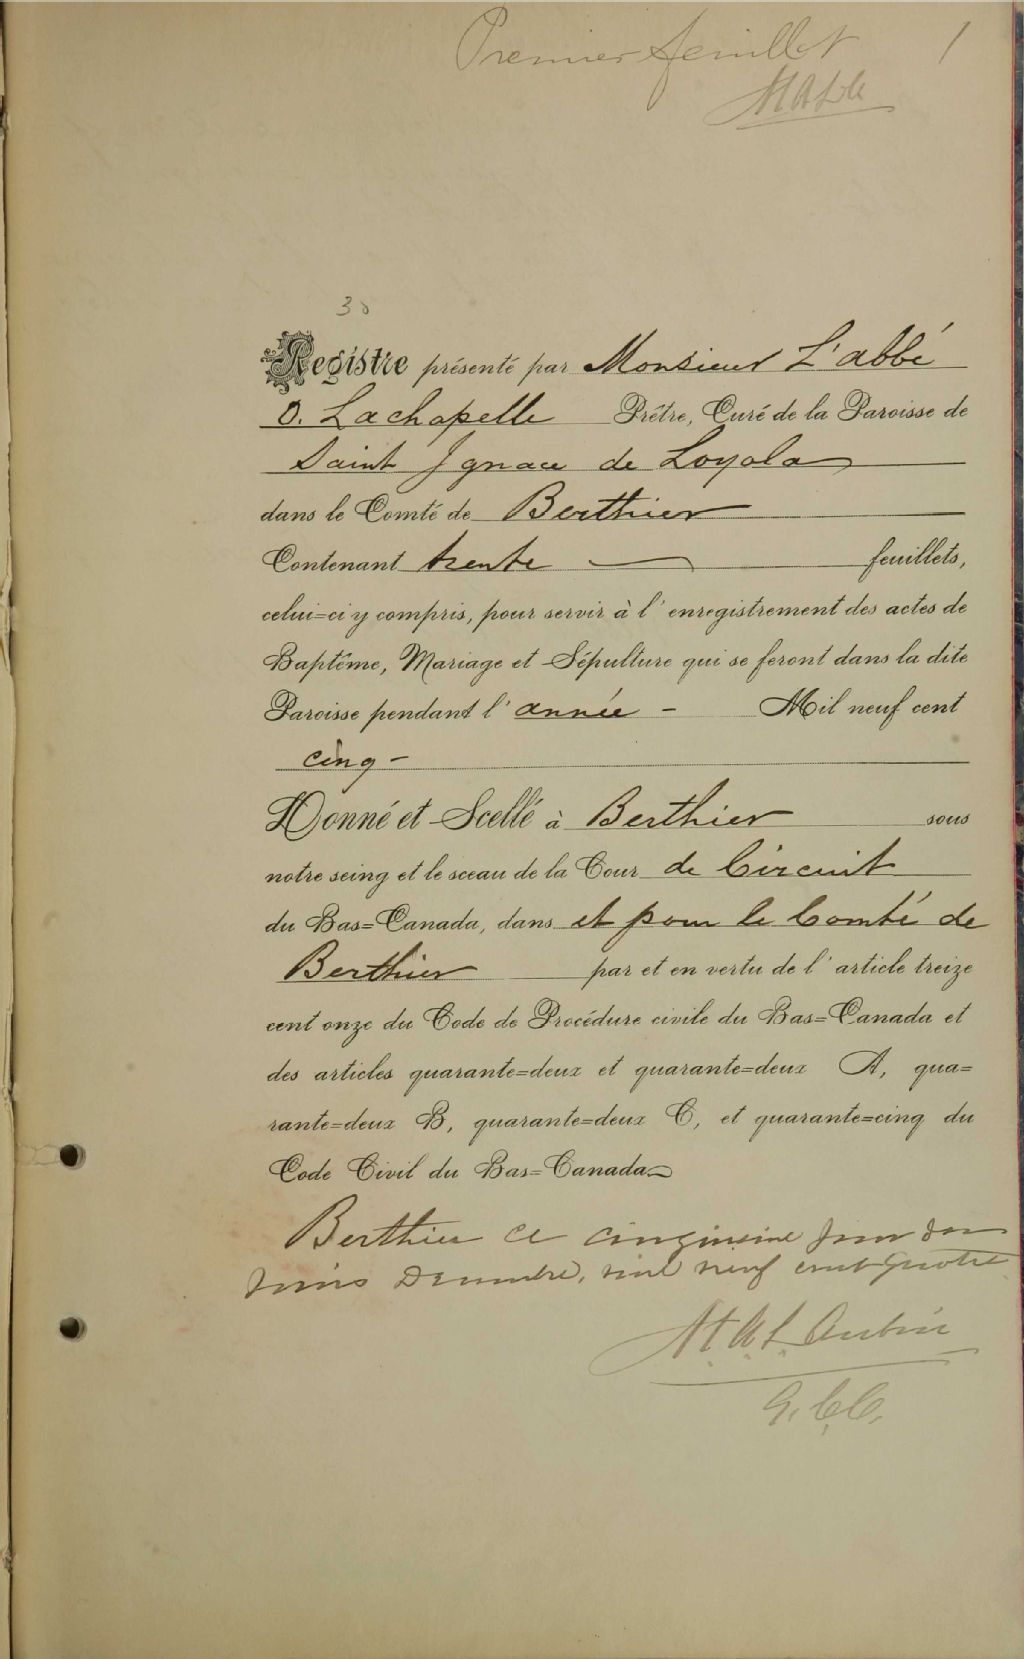 Premier feuillet 1
30
Registre présenté par Monsieur L'abbé
O. Lachapelle Prêtre, Curé de la Paroisse de
Saint Ignace de Loyola
dans le Comté de Berthier
Contenant trente feuillets,
celui=ci y compris, pour servir à l'enregistrement des actes de
Baptême, Mariage et Sépulture qui se feront dans la dite
Paroisse pendant l'année - Mil neuf cent
cinq -
Donné et Scellé à Berthier sous
notre seing et le sceau de la Cour de Circuit
du Bas=Canada, dans et pour le Comté de
Berthier par et en vertu de l'article treize
cent onze du Code de Procédure civile du Bas=Canada et
des articles quarante=deux et quarante=deux A, qua=
rante=deux B, quarante=deux C, et quarante=cinq du
Code Civil du Bas=Canada.
Berthier ce cinquième jour du
mois Décembre, mil neuf cent quatre
Aubin
G. C. C.